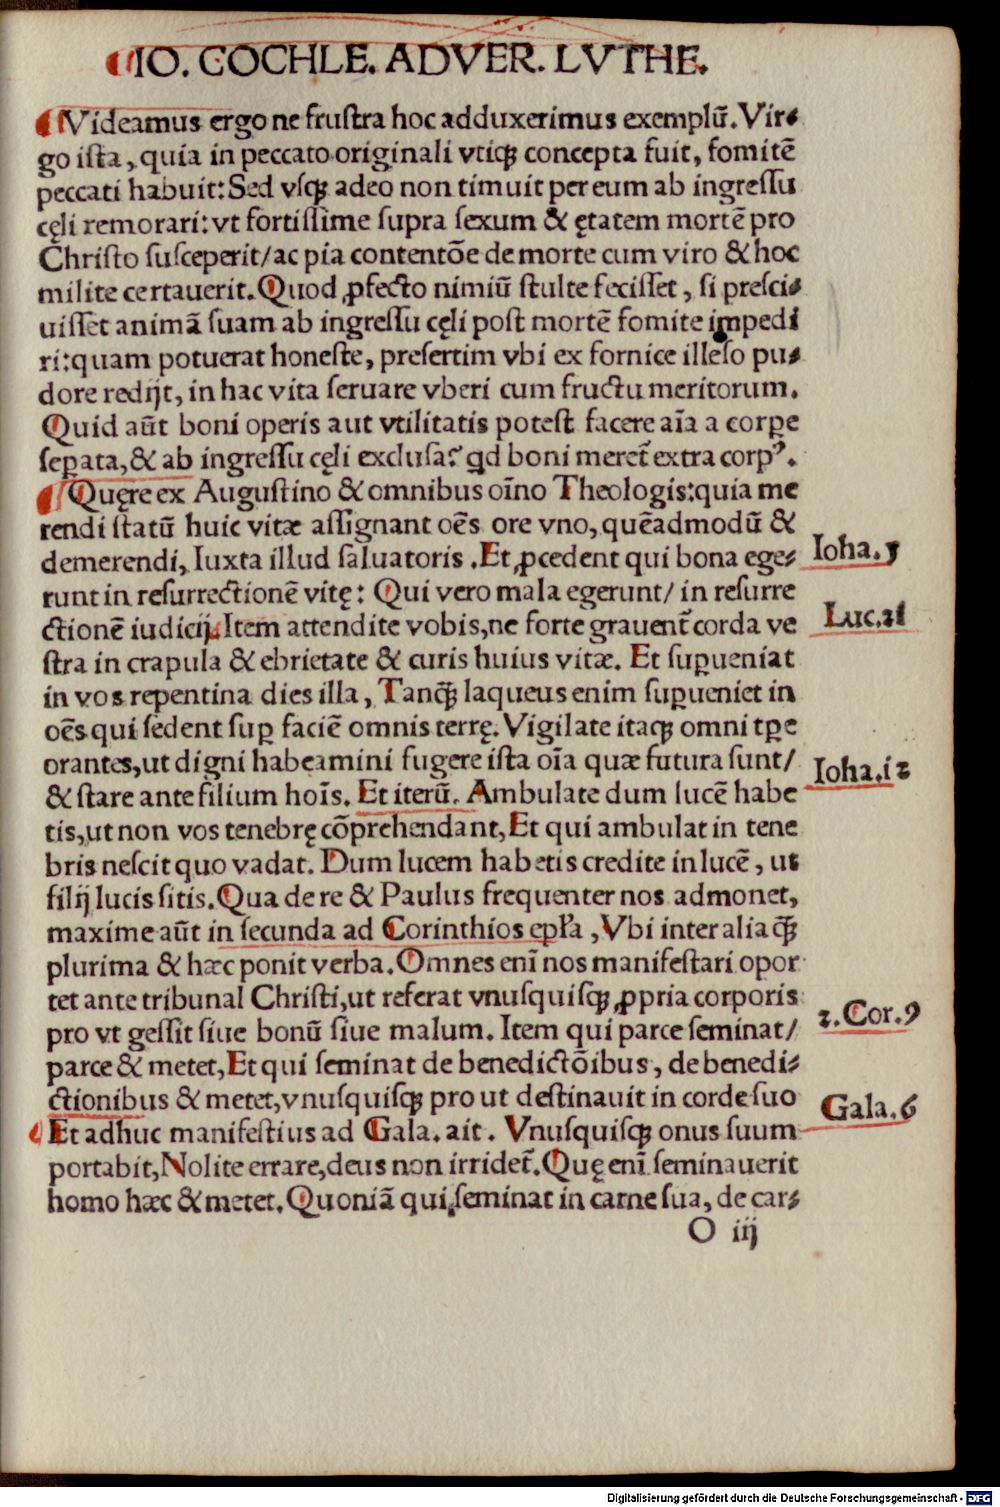 IO. COCHLE. ADVER. LVTHE.
Videamus ergo ne frustra hoc adduxerimus exemplū. Vir⸗
go ista, quia in peccato originali vtiqꝫ concepta fuit, fomitē
peccati habuit: Sed vsqꝫ adeo non timuit per eum ab ingressu
cęli remorari: vt fortissime supra sexum & ętatem mortē pro
Christo susceperit/ ac pia contentōe de morte cum viro & hoc
milite certauerit. Quod ꝓfecto nimiū stulte fecisset, si presci⸗
uisset animā suam ab ingressu cęli post mortē fomite impedi
ri: quam potuerat honeste, presertim vbi ex fornice illeso pu⸗
dore redijt, in hac vita seruare vberi cum fructu meritorum.
Quid aūt boni operis aut vtilitatis potest facere aīa a corꝑe
seꝑata, & ab ingressu cęli exclusa? qd boni meret̄ extra corpꝰ.
Quęre ex Augustino & omnibus oīno Theologis: quia me
rendi statū huic vitæ assignant oēs ore vno, quēadmodū &
demerendi, Iuxta illud saluatoris. Et ꝓcedent qui bona ege⸗
runt in resurrectionē vitę: Qui vero mala egerunt/ in resurre
ctionē iudicij. Item attendite vobis, ne forte grauent̄ corda ve
stra in crapula & ebrietate & curis huius vitæ. Et suꝑueniat
in vos repentina dies illa, Tanqꝫ laqueus enim suꝑueniet in
oēs qui sedent suꝑ faciē omnis terrę. Vigilate itaqꝫ omni tꝑe
orantes, ut digni habeamini fugere ista oīa quæ futura sunt/
& stare ante filium hoīs. Et iterū. Ambulate dum lucē habe
tis, ut non vos tenebrę cōprehendant, Et qui ambulat in tene
bris nescit quo vadat. Dum lucem habetis credite in lucē, ut
filij lucis sitis. Qua de re & Paulus frequenter nos admonet,
maxime aūt in secunda ad Corinthios epl̄a, Vbi inter alia qꝫ
plurima & hæc ponit verba. Omnes enī nos manifestari opor
tet ante tribunal Christi, ut referat vnusquisqꝫ ꝓpria corporis
pro vt gessit siue bonū siue malum. Item qui parce seminat/
parce & metet, Et qui seminat de benedictōibus, de benedi⸗
ctionibus & metet, vnusquisqꝫ pro ut destinauit in corde suo
Et adhuc manifestius ad Gala. ait. Vnusquisqꝫ onus suum
portabit, Nolite errare, deus non irridet̄. Quę enī seminauerit
homo hæc & metet. Quoniā qui seminat in carne sua, de car⸗
O iij
Ioha. 5
Luc. 21
Ioha. 12
2. Cor. 9
Gala. 6
Digitalisierung gefördert durch die Deutsche Forschungsgemeinschaft - DFG